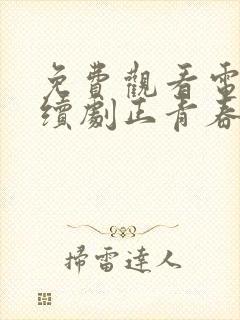 免費觀看電
續劇正青春
掃雷達人